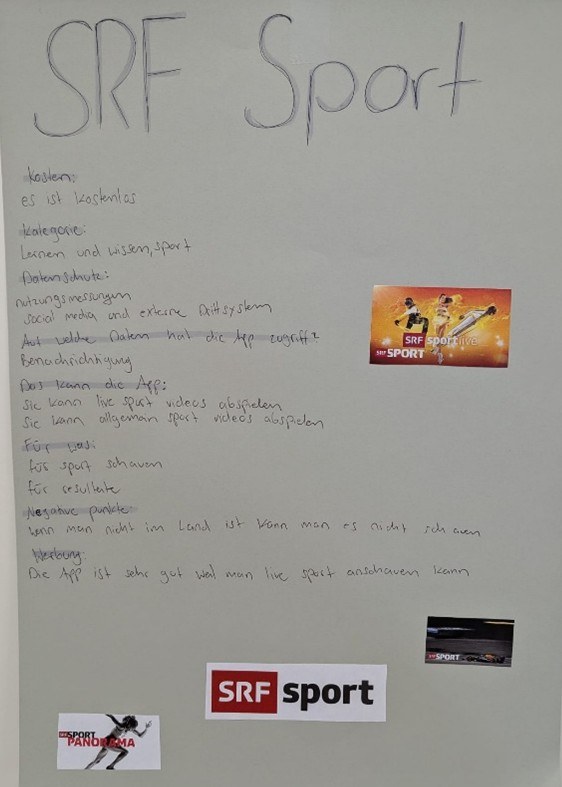 SRF Sport
Kosten:
es ist kostenlos
Kategorie:
Lernen und wissen, sport
Datenschutz:
nutzungsmessungen
social media und externe Drittsystem
Auf welche Daten hat die App zugriff?
Benachrichtigung
Das kann die App:
Sie kann live sport videos abspielen
Sie kann allgemein sport videos abspielen
SRF sportlive
SRF SPORT
Für was:
für sport schauen
für resultate
Negative punkte
wenn man nicht im Land ist kann man es nicht schauen
Werbung
Die App ist sehr gut weil man live sport anschauen kann
SRF SPORT
SRF sport
SRF SPORT
PANORAMA